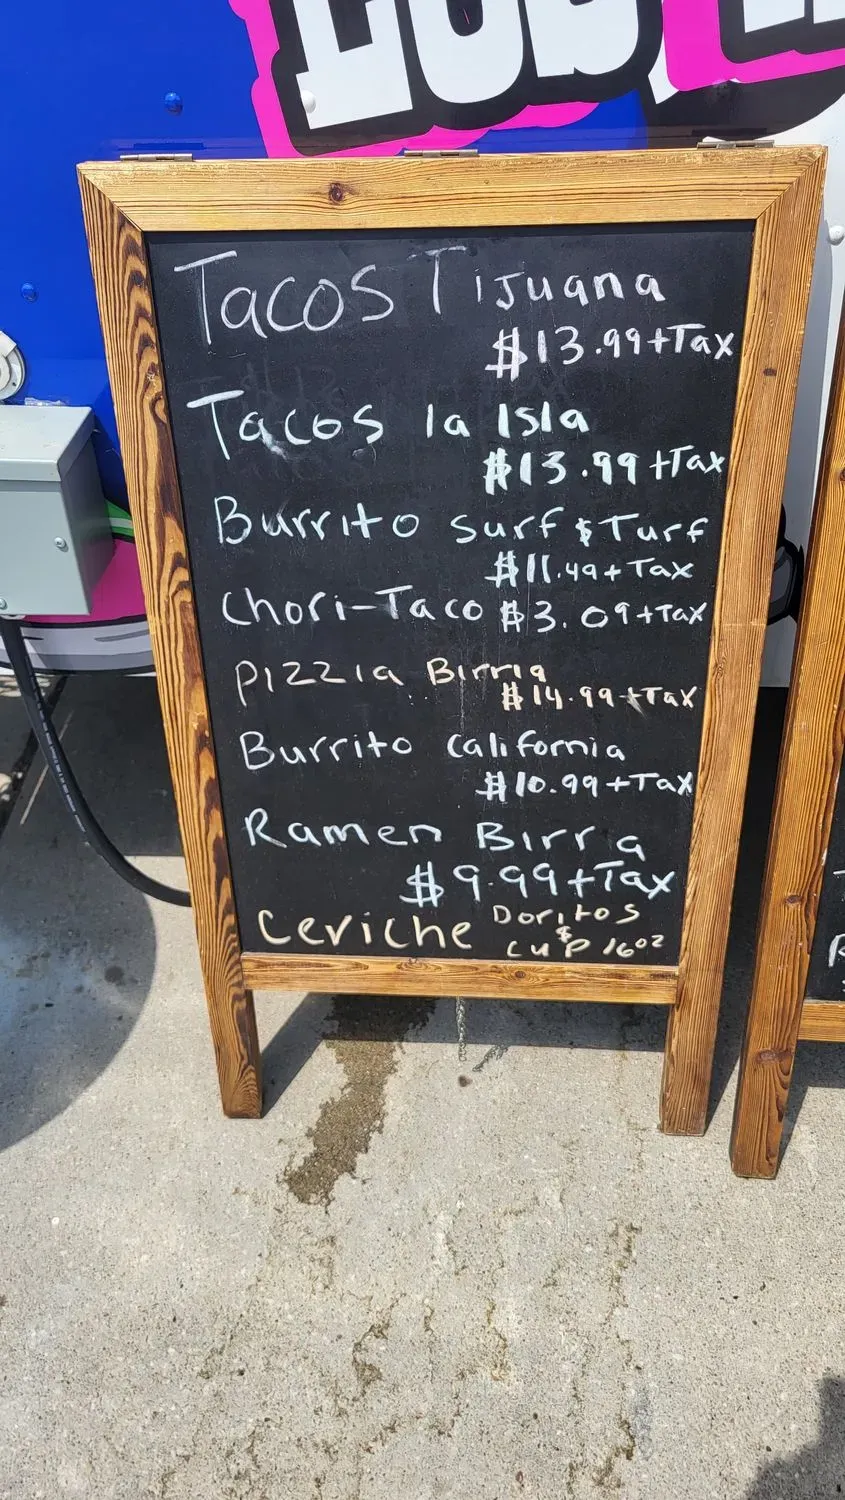 Tacos Tijuana
$13.99+Tax
Tacos la Isla
$13.99+Tax
Burrito surf $ Turf
$11.49+Tax
Chori-Taco $3.09+Tax
Pizzia Birria
$14.99+Tax
Burrito California
$10.99+Tax
Ramen Birria
$9.99+Tax
Ceviche Doritos
$
cup 16oz